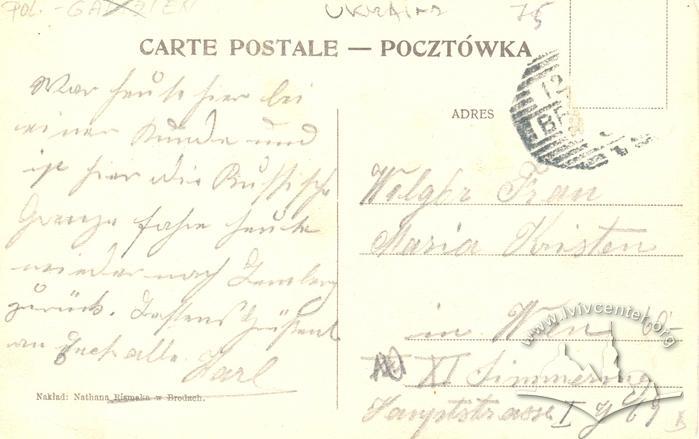 Pol. - GALIZIEN
UKRAINA
75
CARTE POSTALE — POCZTÓWKA
War heute hier bei
einer Kunde und
ist hier die Russische
Grenze fahre heute
wieder nach Lemberg
zurück. Bestens Grüßend
an Euch alle. Karl
Nakład: Nathana Rismaka w Brodach.
ADRES
12
BR
Frau
Maria Kristen
in Wien
XI Simmering
Hauptstrasse
www.lvivcenter.org